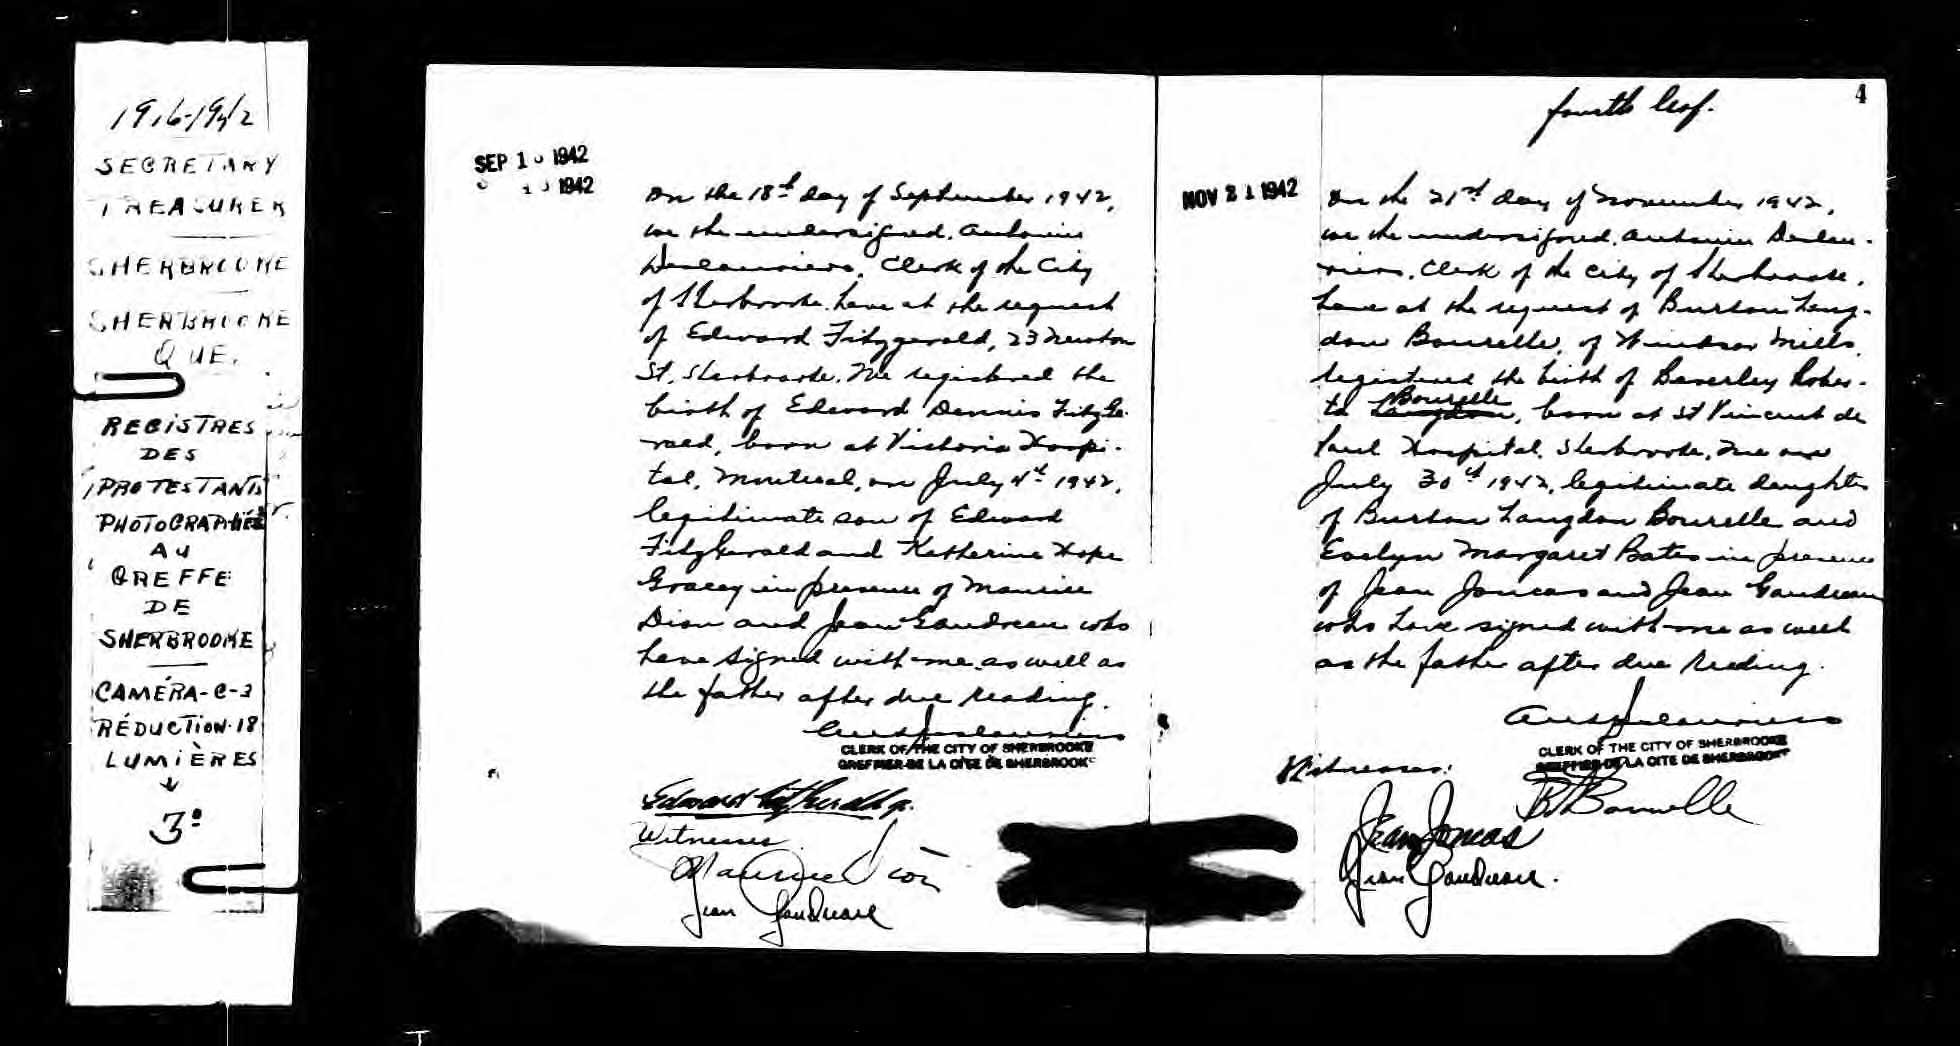 1916-1942
SECRETARY
TREASURER
SHERBROOKE
SHERBROOKE
QUE.
REGISTRES
DES
PROTESTANTS
PHOTOGRAPHIÉS
AU
GREFFE
DE
SHERBROOKE
CAMÉRA-C-3
RÉDUCTION-18
LUMIÈRES
3°
SEP 1 1942
1942
On the 18th day of September 1942,
we the undersigned, Antonin
Deslauriers, Clerk of the City
of Sherbrooke have at the request
of Edward Fitzgerald, 23 Newton
St, Sherbrooke, Que registered the
birth of Edward Dennis FitzGe-
rald, born at Victoria Hospi-
tal, Montreal, on July 4th 1942,
legitimate son of Edward
FitzGerald and Katherine Hope
Gracey in presence of Maurice
Dion and Jean Gaudreau who
have signed with me as well as
the father after due reading.
Ant Deslauriers
CLERK OF THE CITY OF SHERBROOKE
GREFFIER DE LA CITE DE SHERBROOKE
Edward Fitzgerald Jr.
Witnesses
Maurice Dion
Jean Gaudreau
4
fourth leaf.
NOV 21 1942
On the 21st day of November 1942,
we the undersigned, Antonin Deslau-
riers, Clerk of the City of Sherbrooke,
have at the request of Burton Lang-
don Bourelle, of Windsor Mills,
registered the birth of Beverley Rober-
Bourelle
ta Langdon, born at St Vincent de
Paul Hospital, Sherbrooke, Que on
July 30th 1942, legitimate daughter
of Burton Langdon Bourelle and
Evelyn Margaret Bates in presence
of Jean Joncas and Jean Gaudreau
who have signed with me as well
as the father after due reading.
Ant Deslauriers
CLERK OF THE CITY OF SHERBROOKE
GREFFIER DE LA CITE DE SHERBROOKE
Witnesses:
B Bourelle
Jean Joncas
Jean Gaudreau.